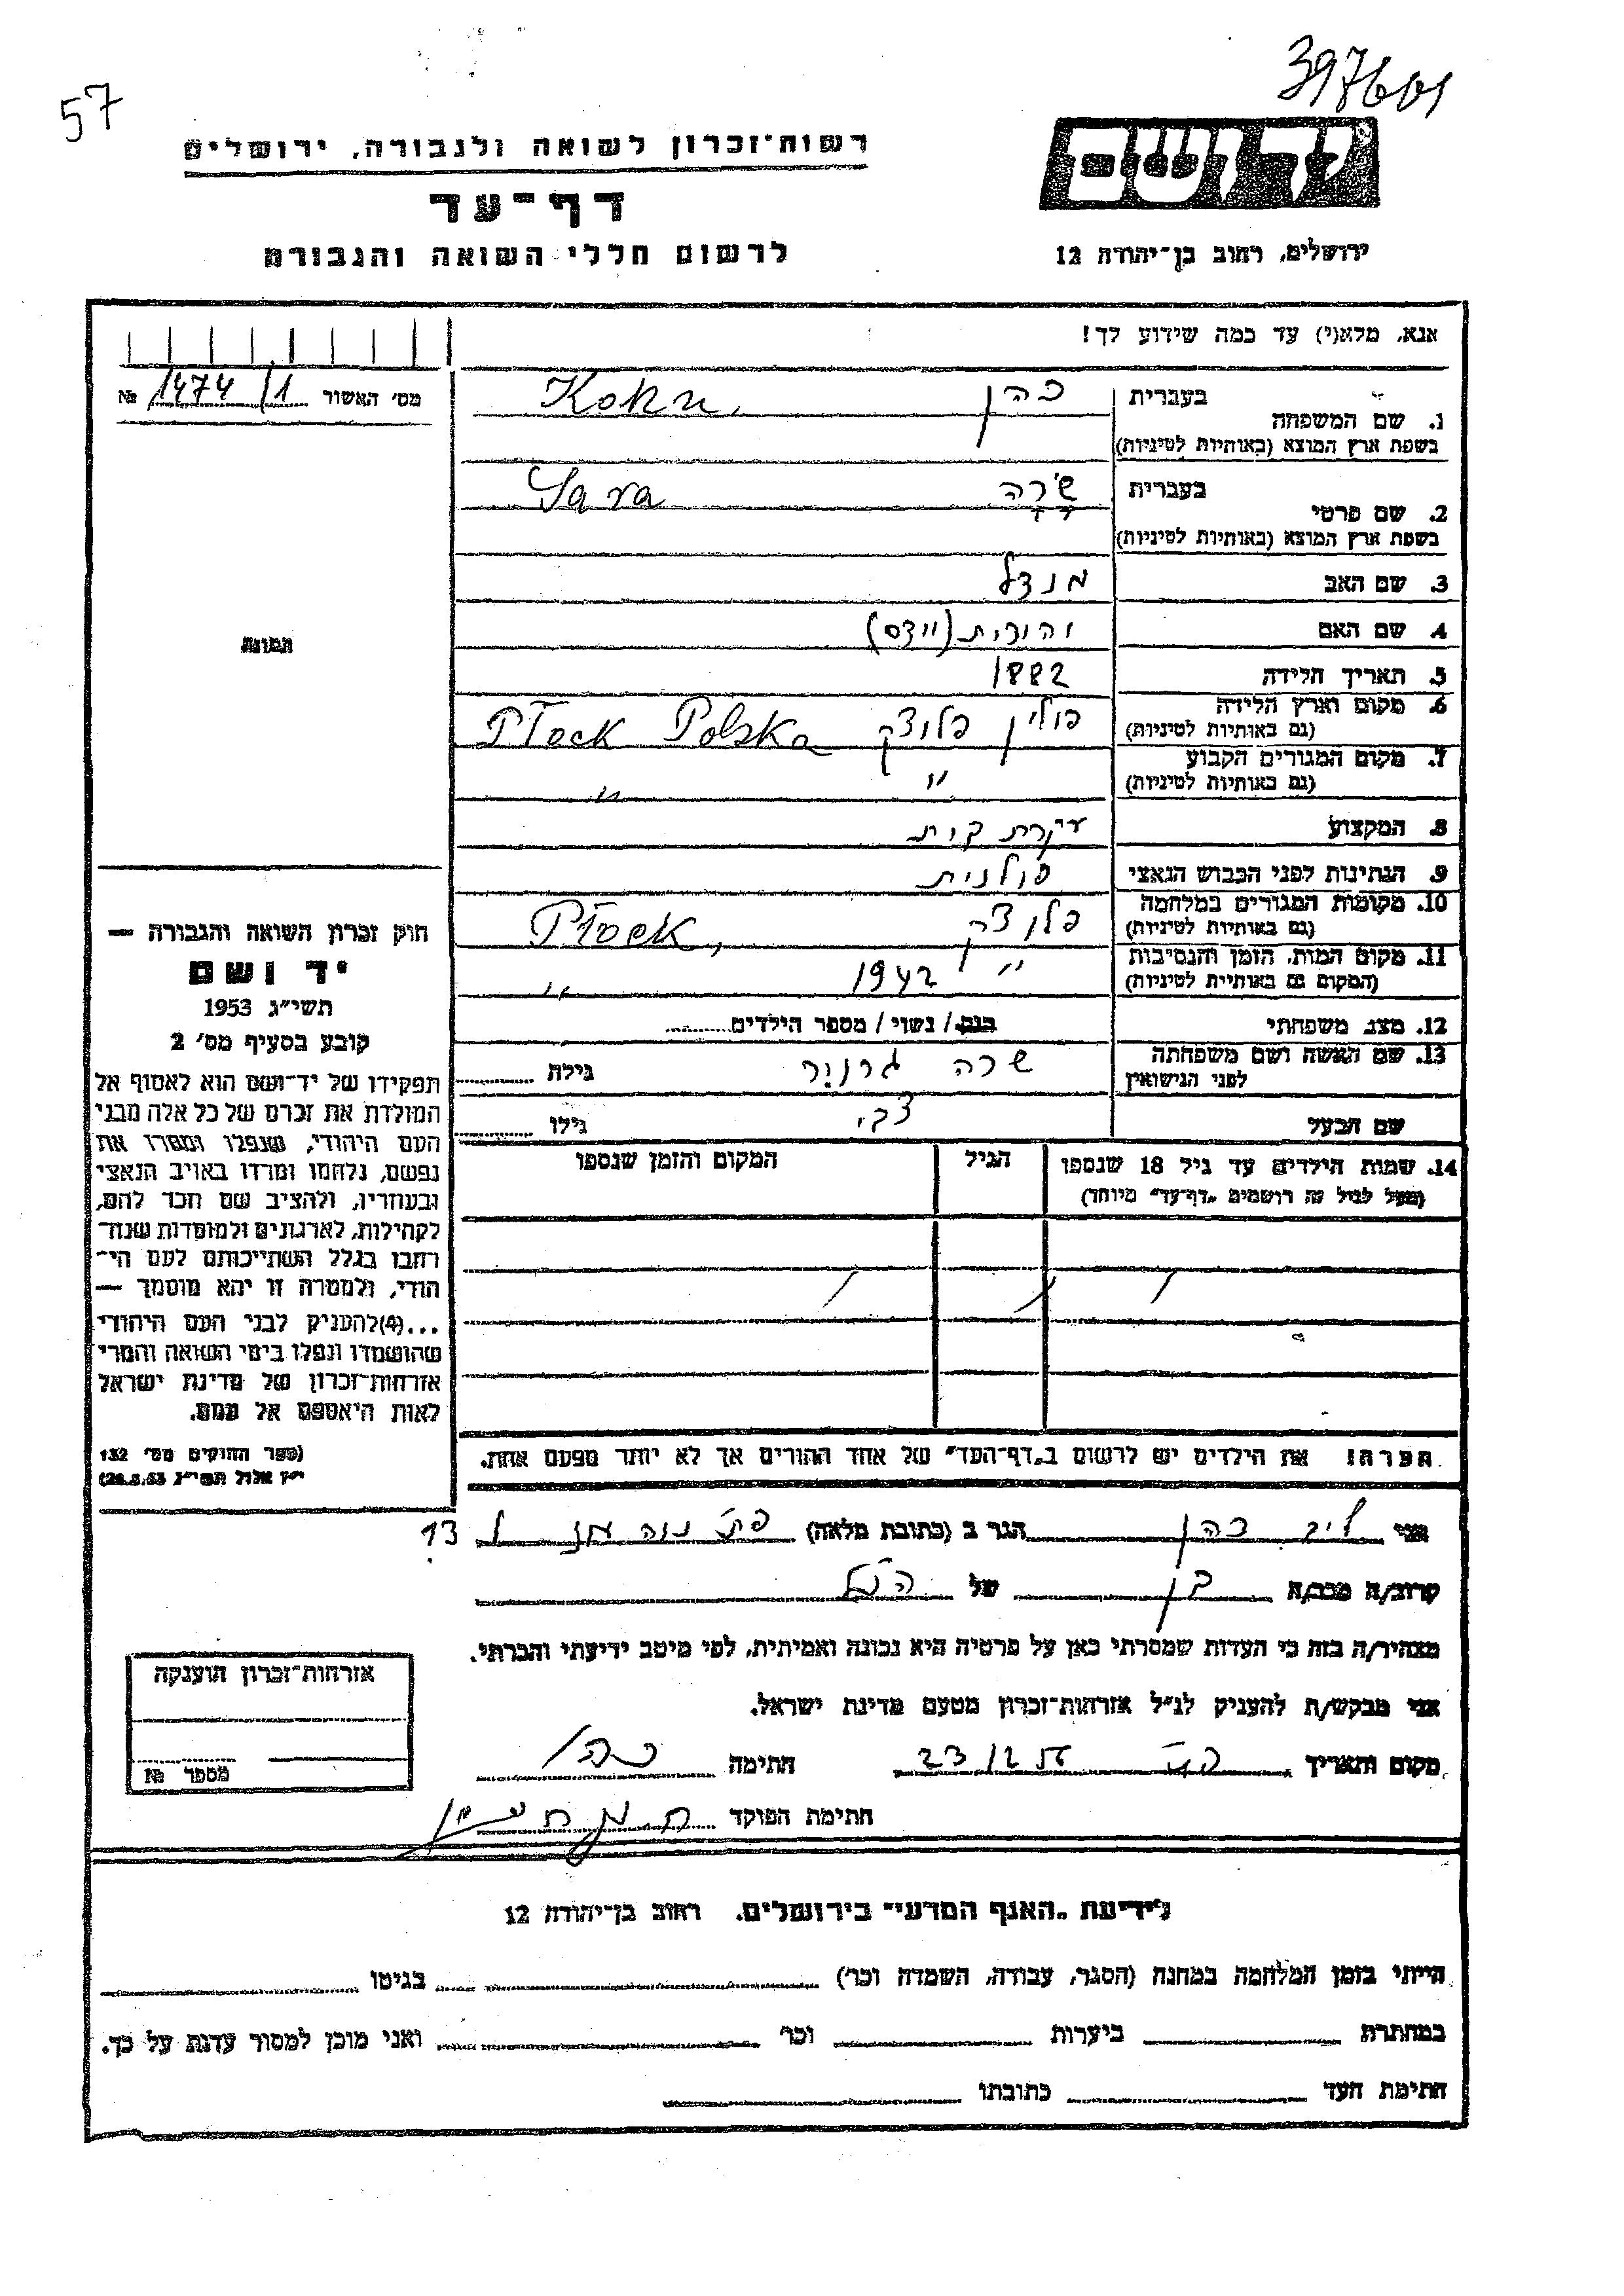 57
רשות־זכרון לשואה ולגבורה, ירושלים
דף־עד
לרשום חללי השואה והגבורה
יד ושם
ירושלים, רחוב בן־יהודה 12
אנא, מלא(י) עד כמה שידוע לך!
מס׳ האשור 1474/1 №
1. שם המשפחה
בעברית כהן Kohn
בשפת ארץ המוצא (באותיות לטיניות)
2. שם פרטי
בעברית שרה Sara
בשפת ארץ המוצא (באותיות לטיניות)
3. שם האב מנדל
4. שם האם יהודית
5. תאריך הלידה 1882
6. מקום וארץ הלידה פולין פלוצק Płock Polska
(גם באותיות לטיניות)
7. מקום המגורים הקבוע " "
(גם באותיות לטיניות)
8. המקצוע עקרת בית
9. הנתינות לפני הכבוש הנאצי פולנית
10. מקומות המגורים במלחמה פלוצק Płock,
(גם באותיות לטיניות)
11. מקום המות, הזמן והנסיבות " 1942 "
(המקום גם באותיות לטיניות)
12. מצב משפחתי נשוי / מספר הילדים
13. שם האשה ושם משפחתה שרה גילה
לפני הנישואין
שם הבעל צבי גילו
14. שמות הילדים עד גיל 18 שנספו הגיל המקום והזמן שנספו
(מעל לגיל זה רושמים „דף־עד” מיוחד)
הערה: את הילדים יש לרשום ב„דף־העד” של אחד ההורים אך לא יותר מפעם אחת.
תמונה
חוק זכרון השואה והגבורה —
יד ושם
תשי״ג 1953
קובע בסעיף מס׳ 2
תפקידו של יד־ושם הוא לאסוף אל
המולדת את זכרם של כל אלה מבני
העם היהודי, שנפלו ומסרו את
נפשם, נלחמו ומרדו באויב הנאצי
ובעוזריו, ולהציב שם וזכר להם,
לקהילות, לארגונים ולמוסדות שנח־
רבו בגלל השתייכותם לעם הי־
הודי, ולמטרה זו יהא מוסמך —
...(4) להעניק לבני העם היהודי
שהושמדו ונפלו בימי השואה והמרי
אזרחות־זכרון של מדינת ישראל
לאות היאספם אל עמם.
(ספר החוקים מס׳ 132
י״ז אלול תשי״ג 28.8.53)
אני כהן הגר ב (כתובת מלאה) 13
קרוב/ה מכב/ה בן של הנ״ל
מצהיר/ה בזה כי העדות שמסרתי כאן על פרטיה היא נכונה ואמיתית, לפי מיטב ידיעתי והכרתי.
אני מבקש/ת להעניק לנ״ל אזרחות־זכרון מטעם מדינת ישראל.
מקום ותאריך חתימה כהן
חתימת הפוקד
אזרחות־זכרון הוענקה
מספר №
לידיעת „האגף המדעי” בירושלים, רחוב בן־יהודה 12
הייתי בזמן המלחמה במחנה (הסגר, עבודה, השמדה וכו׳) בגיטו
במחתרת ביערות וכו׳ ואני מוכן למסור עדות על כך.
חתימת העד כתובתו